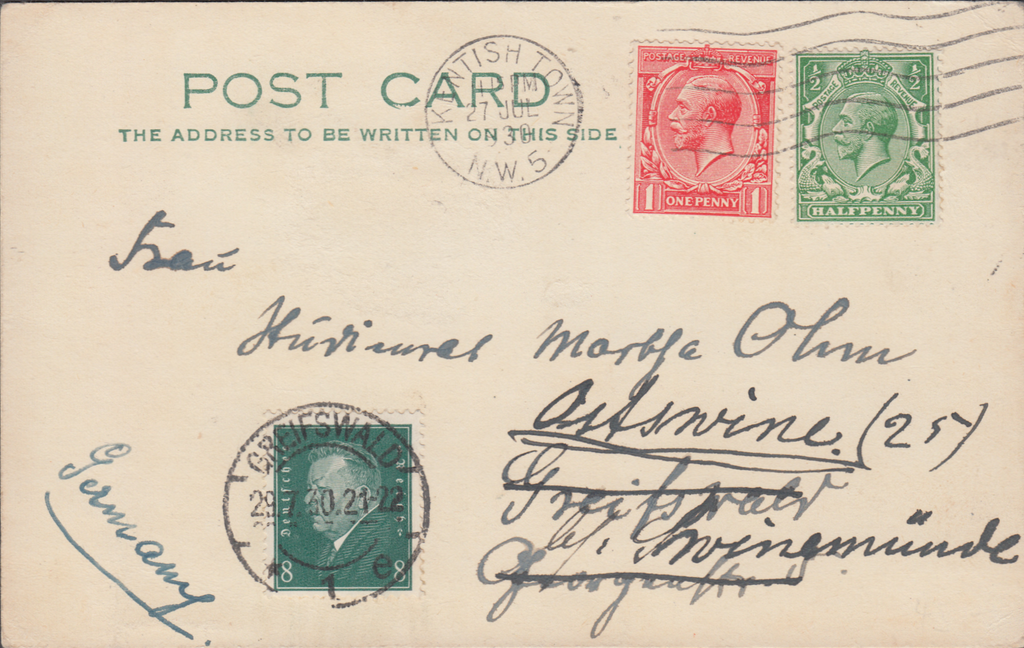 POST CARD
THE ADDRESS TO BE WRITTEN ON THIS SIDE
KENTISH TOWN
PM
27 JUL
30
N.W.5
POSTAGE REVENUE
1 ONE PENNY 1
½ ½
POSTAGE REVENUE
HALFPENNY
Frau
Studienrat Martha Ohm
Ostswine (25)
Greifswald
b/. Swinemünde
Germany.
GREIFSWALD
Deutsches Reich
29.7.30.21-22
* 1 e
8 8